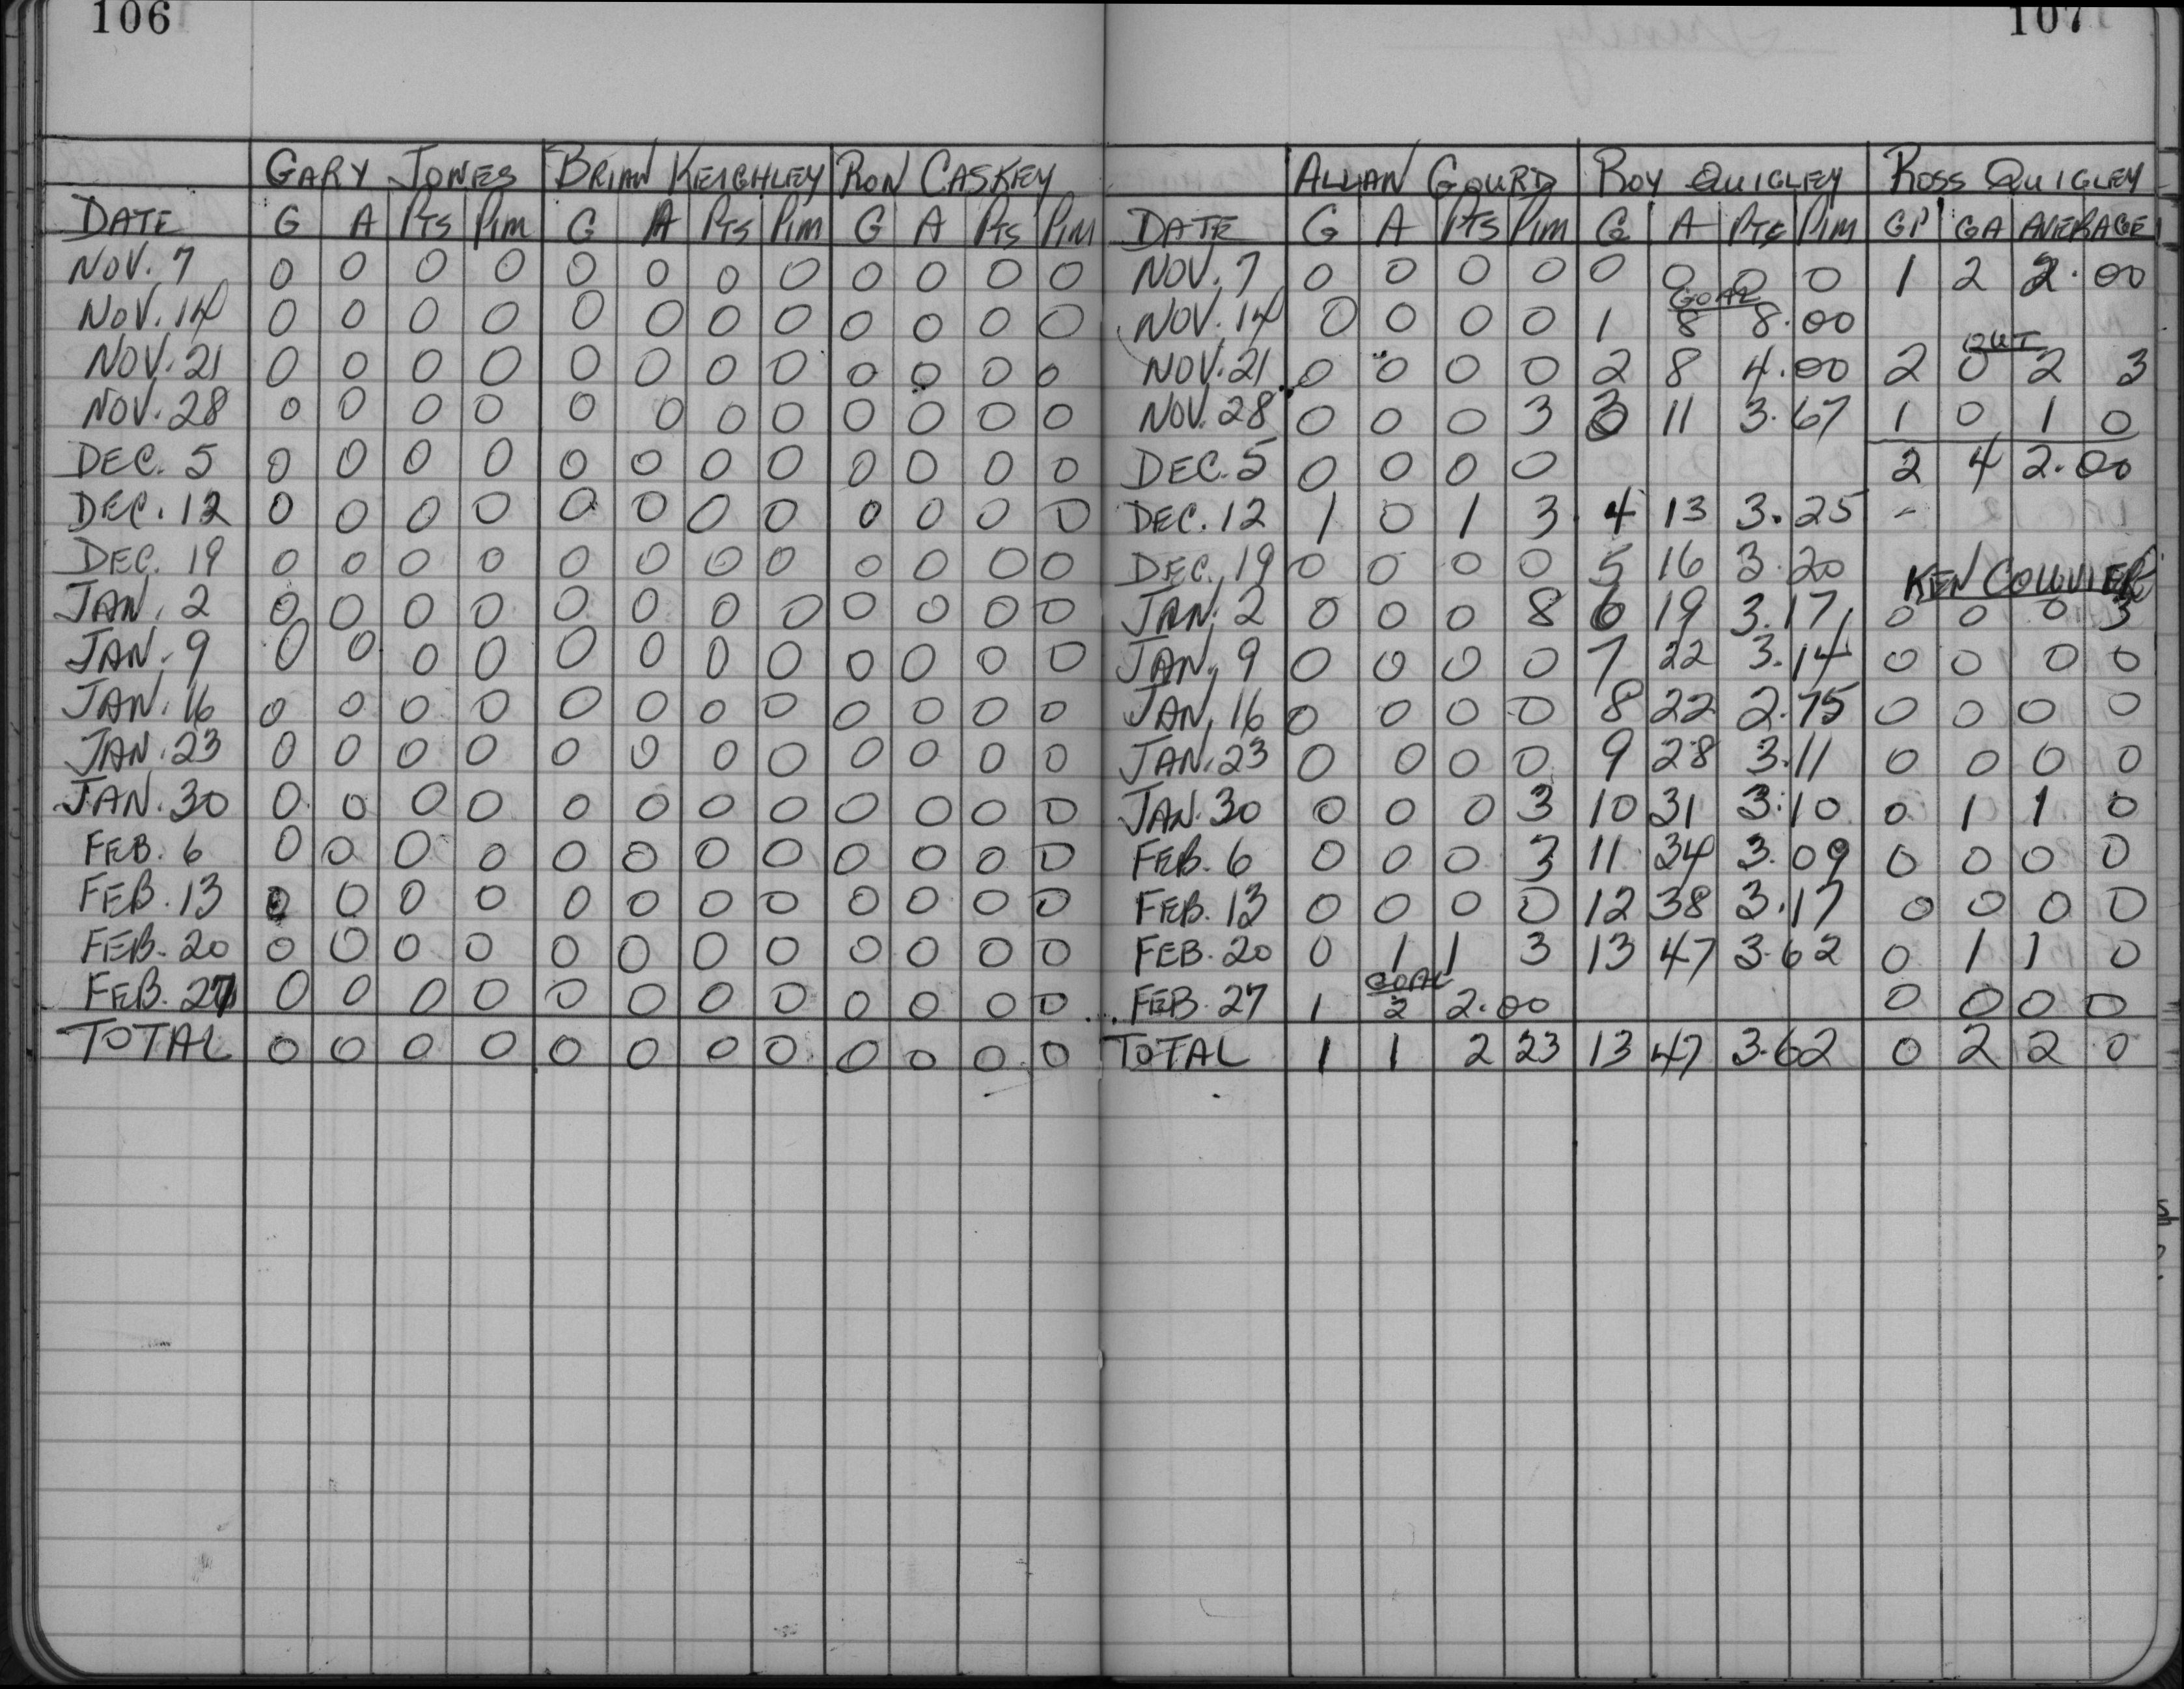 106
GARY JONES BRIAN KEIGHLEY RON CASKEY
DATE G A PTS PIM G A PTS PIM G A PTS PIM
NOV. 7 0 0 0 0 0 0 0 0 0 0 0 0
NOV. 14 0 0 0 0 0 0 0 0 0 0 0 0
NOV. 21 0 0 0 0 0 0 0 0 0 0 0 0
NOV. 28 0 0 0 0 0 0 0 0 0 0 0 0
DEC. 5 0 0 0 0 0 0 0 0 0 0 0 0
DEC. 12 0 0 0 0 0 0 0 0 0 0 0 0
DEC. 19 0 0 0 0 0 0 0 0 0 0 0 0
JAN. 2 0 0 0 0 0 0 0 0 0 0 0 0
JAN. 9 0 0 0 0 0 0 0 0 0 0 0 0
JAN. 16 0 0 0 0 0 0 0 0 0 0 0 0
JAN. 23 0 0 0 0 0 0 0 0 0 0 0 0
JAN. 30 0 0 0 0 0 0 0 0 0 0 0 0
FEB. 6 0 0 0 0 0 0 0 0 0 0 0 0
FEB. 13 0 0 0 0 0 0 0 0 0 0 0 0
FEB. 20 0 0 0 0 0 0 0 0 0 0 0 0
FEB. 27 0 0 0 0 0 0 0 0 0 0 0 0
TOTAL 0 0 0 0 0 0 0 0 0 0 0 0
107
ALLAN GOURD ROY QUIGLEY ROSS QUIGLEY
DATE G A PTS PIM G A PTS PIM GP GA AVERAGE
NOV. 7 0 0 0 0 0 0 0 0 1 2 2.00
GOAL
NOV. 14 0 0 0 0 1 8 8.00
OUT
NOV. 21 0 0 0 0 2 8 4.00 2 0 2 3
NOV. 28 0 0 0 3 3 11 3.67 1 0 1 0
DEC. 5 0 0 0 0 2 4 2.00
DEC. 12 1 0 1 3 4 13 3.25 -
DEC. 19 0 0 0 0 5 16 3.20 KEN
JAN. 2 0 0 0 8 6 19 3.17 0 0 0 3
JAN. 9 0 0 0 0 7 22 3.14 0 0 0 0
JAN. 16 0 0 0 0 8 22 2.75 0 0 0 0
JAN. 23 0 0 0 0 9 28 3.11 0 0 0 0
JAN. 30 0 0 0 3 10 31 3.10 0 1 1 0
FEB. 6 0 0 0 3 11 34 3.09 0 0 0 0
FEB. 13 0 0 0 0 12 38 3.17 0 0 0 0
FEB. 20 0 1 1 3 13 47 3.62 0 1 1 0
GOAL
FEB. 27 1 2 2.00 0 0 0 0
TOTAL 1 1 2 23 13 47 3.62 0 2 2 0